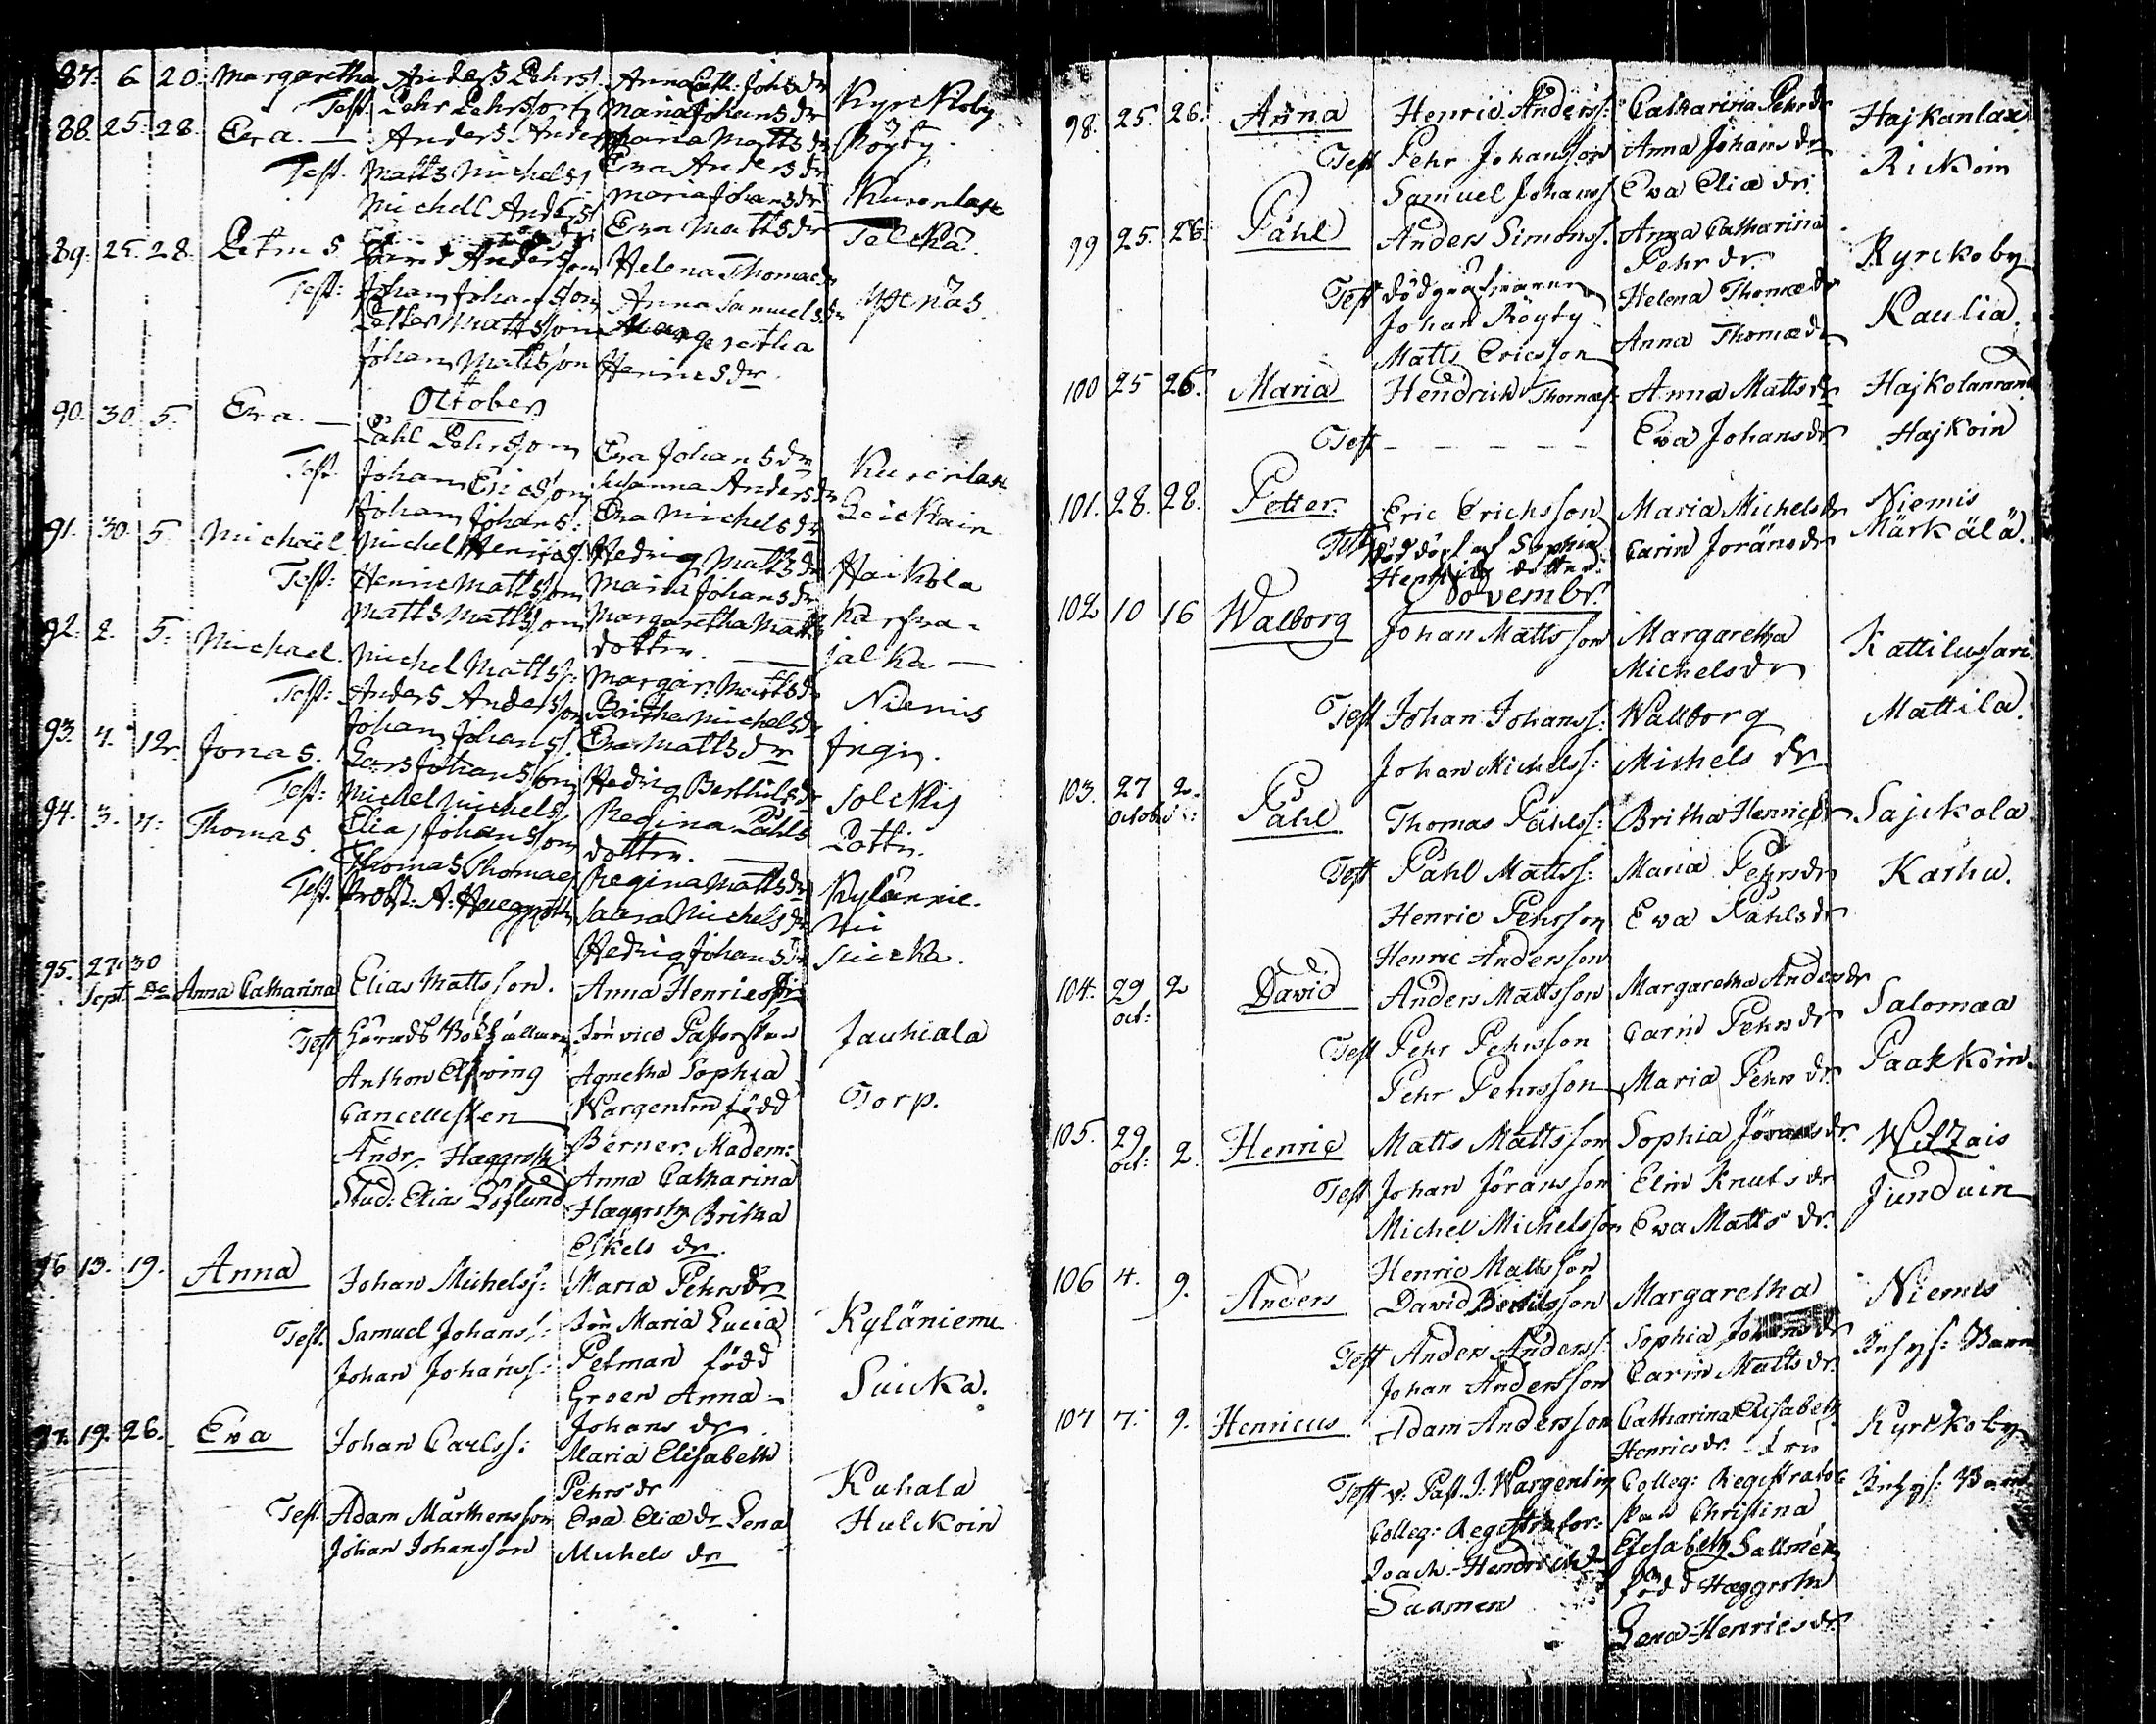 87. 6 20. Margaretha Anders Pehrs: Anna Cath: Johs dr
Test. Pehr Pehrsson Maria Johans dr Kyrckoby
88. 25. 28. Eva. — Anders Anders Maria Matts dr Röyty.
Test. Matts Michels: Eva Anders dr
Michell Anders: Maria Johans dr Kurenlax
Eva Matts dr Telckä.
89. 25. 28. Petrus Anderson Helena Thomæ dr
Test: Johan Johansson Anna Samuels dr
Petter Mattsson Margeretha
Johan Mattsson Henrics dr.
October
90. 30. 5. Eva. — Påhl Pehrsson Eva Johans dr
Test. Johan Ericsson Susanna Anders dr Kurenlax
Johan Johans: Eva Michels dr
91. 30. 5. Michaël Michel Henrics: Hedvig Matts dr
Test: Henric Mattsson Maria Johans dr Haikola
Matts Mattsson Margaretha Matts Karfva-
dotter. — jalka —
92. 2. 5. Michael. Michel Matts: Margar: Matts dr
Test: Anders Andersson Britha Michels dr Niemis
Johan Johans: Eva Matts dr Ingin.
93. 4. 12. Jonas. Lars Johansson Hedvig Berthils dr
Test: Michel Michels: Regina Påhls Solcky
94. 3. 4. Thomas. Elias Johansson dotter. — Pottin.
Thomas Thomæ: Regina Matts dr
Test. Probst: A: Hæggroth Saara Michels dr Kylännie-
Hedvig Johans dr mi
Suicka.
95. 27 30
Sept. Anna Catharina Elias Mattsson. Anna Henrics dr
Test Härads Bokhållaren Fru vice Pastorskan Jauhiala
Anthon Elfving Agnetha Sophia
Cancellisten Wargentin född Torp.
Andr. Hæggroth Berner. Madem:
Stud: Elias Löflund Anna Catharina
Hæggroth Britha
Eskels dr.
96 13. 19. Anna Johan Michelss: Maria Pehrs dr
Test. Samuel Johanss: Fru Maria Lucia Kyläniemi
Johan Johanss: Petman född
Groen Anna — Suicka.
Johans dr
97. 19. 26. Eva Johan Carlss: Maria Elisabeth
Pehrs dr Kuhala
Test. Adam Mårthensson Eva Eliæ dr Lena Hulckoin
Johan Johansson Michels dr
98. 25. 26. Anna Henric Anderss: Catharina Pehr dr Hajkanlax
Test Pehr Johansson Anna Johans dr Rickoin
Samuel Johanss: Eva Eliæ dr.
99 25. 26. Påhl Anders Simonss: Anna Catharina
Pehr dr. Kyrckoby
Test dödgräfvaren Helena Thomæ dr
Johan Röyty Anna Thomæ dr Kaulia.
Matts Ericsson
100 25 26. Maria Hendrich Thomæs: Anna Matts dr Hajkolanrand
Test — — — — — Eva Johans dr Hajkoin
101. 28. 28. Petter. Eric Erichsson Maria Michels dr Niemis
Test Nöddöpt af Sophia Carin Jörans dr Märkälä.
Henrichs dotter.
Novembr.
102 10 16 Walborg Johan Mattsson Margaretha Kattilusari
Michels dr
Test Johan Johanss: Wallborg Mattila.
Johan Michelss: Michels dr
103. 27 2.
octob: Påhl Thomas Påhlss: Britha Henrics dr Sajckola.
Test Påhl Mattss: Maria Pehrs dr Karhu.
Henric Pehrsson Eva Påhls dr
Henric Andersson
104. 29 2 David Anders Mattsson Margaretha Anders dr Salomaa
oct:
Test Pehr Pehrsson Carin Pehrs dr
Pehr Pehrsson Maria Pehrs dr Paakkoin.
105. 29 2. Henric Matts Mattsson Sophia Jörans dr.
oct:
Test Johan Jöransson Elin Knuts dr Junduin
Michel Michelsson Eva Matts dr.
Henric Mattsson
106 4. 9. Anders David Bertilsson Margaretha Niemis
Test Anders Anderss: Sophia Johans dr
Johan Andersson Carin Matts dr.
107 7. 9. Henricus Adam Andersson Catharina Elisabeth Kyrckoby
Henrics dr. Fru
Test v: Past. J: Wargentin Colleg: Registrator
Colleg: Registrator: skan Christina
Joach. Hendrich Elisabeth Sallmén
Saamen född Hæggroth
Lena Henrics dr.